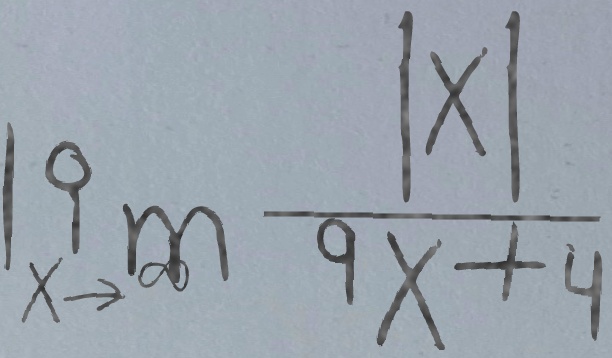 lim x→∞ |x| / 9x+4